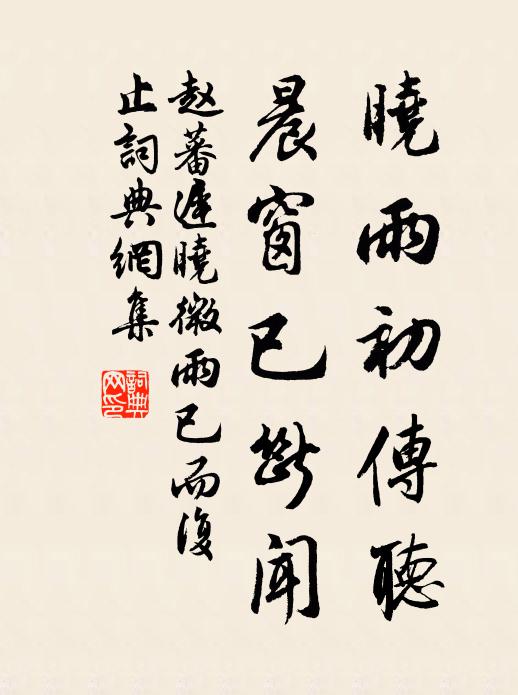 曉雨初傳聽
晨窗已斷聞
赵蕃遲曉微雨已而復
止詞典網集
詞典
网印